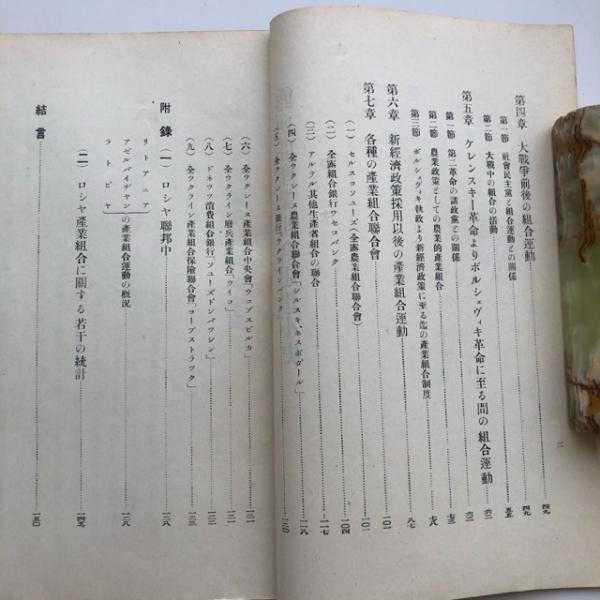 二
第四章 大戰爭前後の組合運動 四九
第一節 社會民主黨と組合運動との關係 四九
第二節 大戰中の組合の活動 五五
第五章 ケレンスキー革命よりボルシェヴィキ革命に至る間の組合運動 六三
第一節 第二革命の諸政黨との關係 六三
第二節 農業政策としての農業的產業組合
第三節 ボルシェヴィキ執政より新經濟政策に至る迄の產業組合制度
第六章 新經濟政策採用以後の產業組合運動 八七
第七章 各種の產業組合聯合會 一〇一
(一) セルスコソユーズ(全露農業組合聯合會) 一〇一
(二) 全露組合銀行「ウセコバンク」 一〇四
(三) アルテル其他生產者組合の聯合 一一七
(四) 全ウクレーヌ農業組合聯合會「シルスキ、ホスポダール」 一一八
(五) 全ウクレーヌ銀行「ウクラインバンク」 一二〇
(六) 全ウクレーヌ產業組合中央會「ウコプスピルカ」 一二一
(七) 全ウクライン廢兵產業組合「ウイコ」 一三一
(八) ドネツツ消費組合銀行「ソユーズドンバツシン」 一三二
(九) 全ウクライン產業組合保險聯合會「コープストラツク」 一三三
附錄 (一) ロシヤ聯邦中 一三八
リトアニア
アゼルバイヂヤンの產業組合運動の概況 一三八
ラトビヤ
(二) ロシヤ產業組合に關する若干の統計 一四五
結言 一五〇